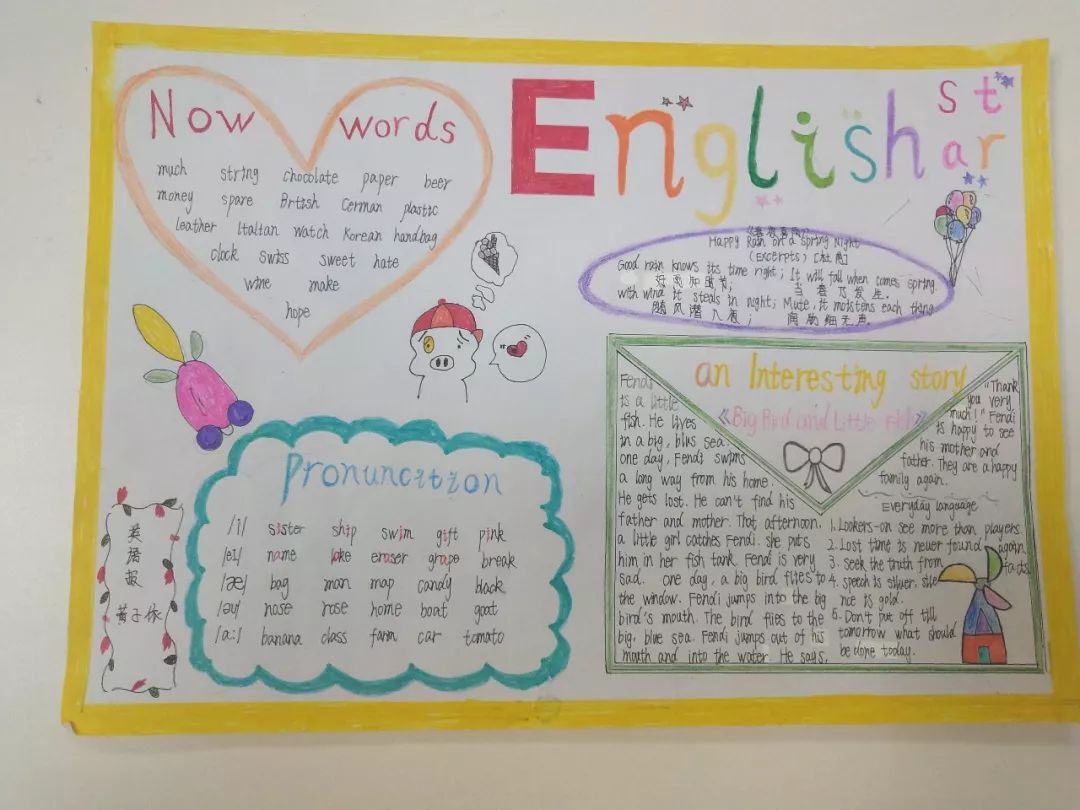 English
st
ar
Now words
much string chocolate paper beer
money spare British German plastic
leather Italian watch Korean handbag
clock swiss sweet hate
wine make
hope
《春夜喜雨》
Happy Rain on a spring Night
(Excerpts) [杜甫]
Good rain knows its time right; It will fall when comes spring.
好雨知时节; 当春乃发生.
with wind it steals in night; Mute, it moistens each thing
随风潜入夜; 润物细无声.
an Interesting story
《Big Bird and Little Fish》
Fendi
is a little
fish. He lives
in a big, blus sea.
one day, Fendi swims
a long way from his home.
He gets lost. He can't find his
father and mother. That afternoon.
a little girl catches Fendi. she puts
him in her fish tank. Fendi is very
sad. one day, a big bird flies to
the window. Fendi jumps into the big
bird's mouth. The bird flies to the
big, blue sea. Fendi jumps out of his
mouth and into the water. He says,
"Thank
you very
much!" Fendi
is happy to see
his mother and
father. They are a happy
family again.
Everyday language
1. Lookers-on see more than players.
2. Lost time is never found again.
3. seek the truth from facts
4. speech is silver. sile
nce is gold.
5. Don't put off till
tomorrow what should
be done today.
Pronuncition
/i/ sister ship swim gift pink
/eɪ/ name lake eraser grape break
/æ/ bag man map candy black
/əʊ/ nose rose home boat goat
/a:/ banana class farm car tomato
英
语
报
黄子依